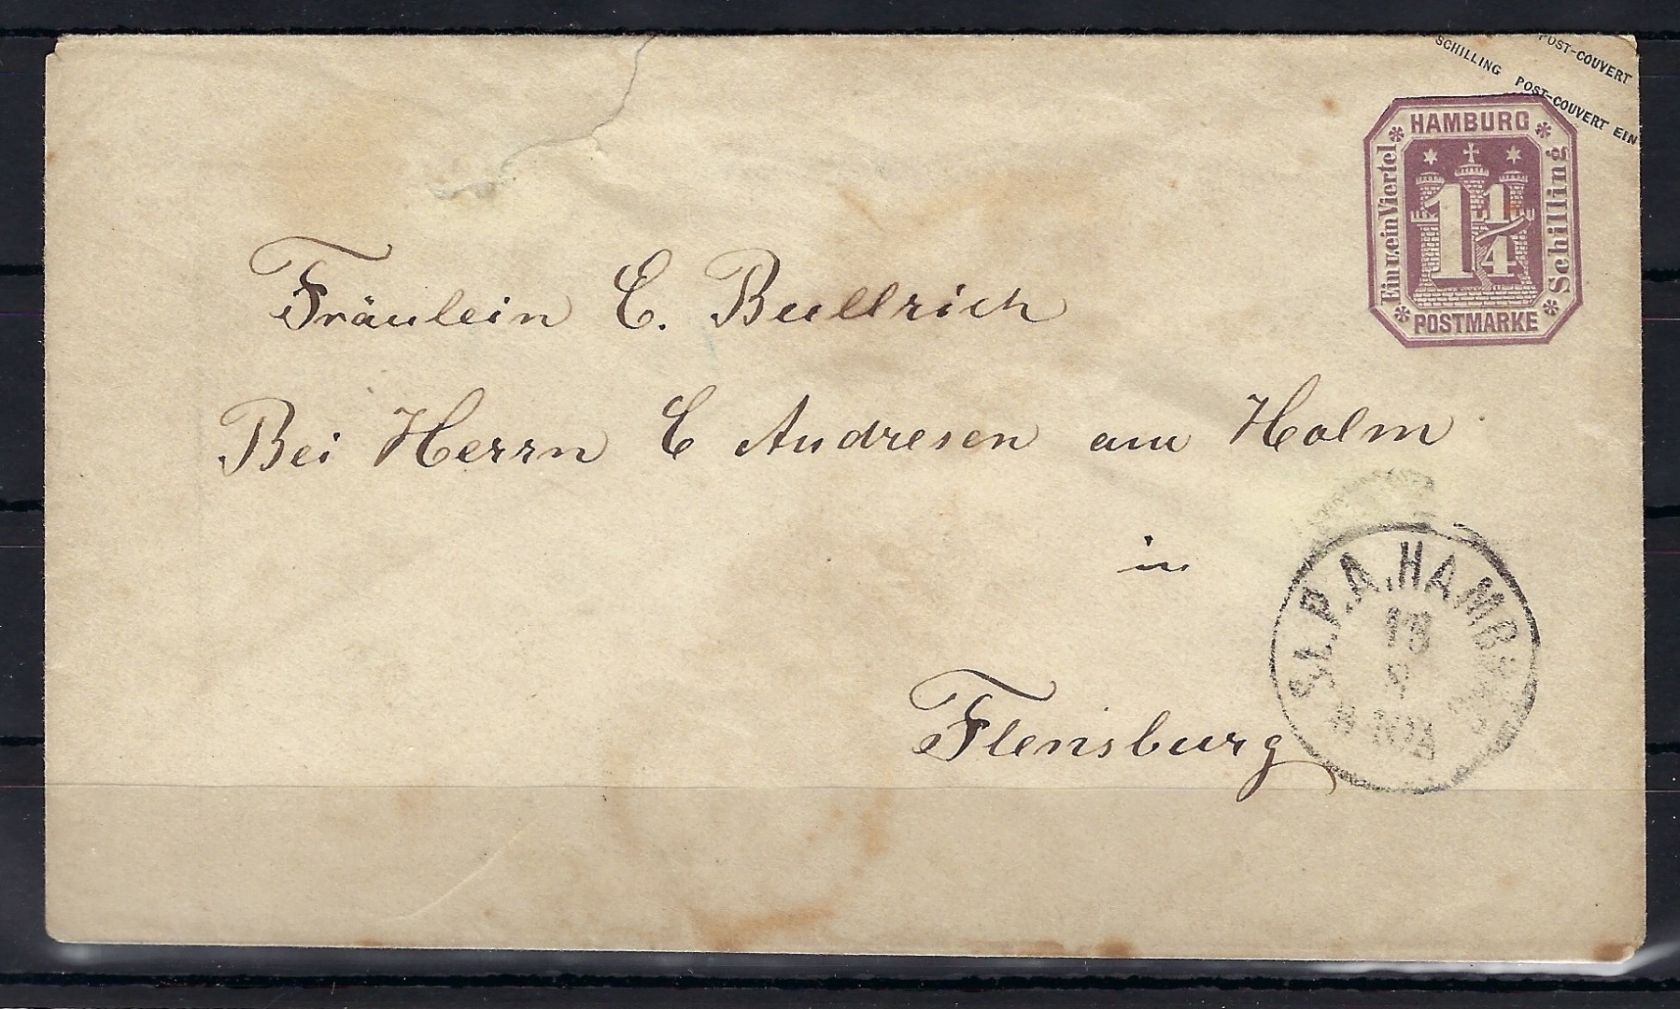 POST-COUVERT
SCHILLING POST-COUVERT EIN
HAMBURG
Ein u. ein Viertel
1 1/4
Schilling
POSTMARKE
Fräulein C. Bullrich
Bei Herrn C Andresen am Holm
in
Flensburg
S.t.P.A. HAMB